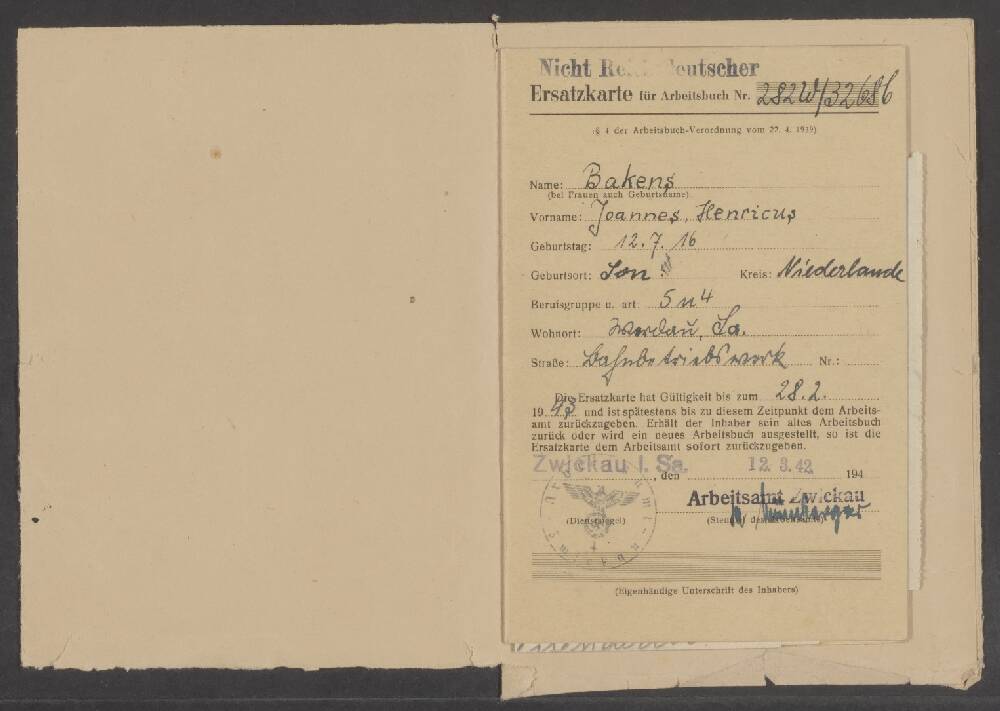 Nicht Re deutscher
Ersatzkarte für Arbeitsbuch Nr. 282W/32686
(§ 4 der Arbeitsbuch-Verordnung vom 22. 4. 1939)
Name: Bakens
(bei Frauen auch Geburtsname)
Vorname: Joannes, Henricus
Geburtstag: 12. 7. 16
Geburtsort: Son Kreis: Niederlande
Berufsgruppe u. art: 5 u 4
Wohnort: Werdau, Sa.
Straße: Bahnbetriebswerk Nr.:
Die Ersatzkarte hat Gültigkeit bis zum 28. 2.
19 43 und ist spätestens bis zu diesem Zeitpunkt dem Arbeits-
amt zurückzugeben. Erhält der Inhaber sein altes Arbeitsbuch
zurück oder wird ein neues Arbeitsbuch ausgestellt, so ist die
Ersatzkarte dem Arbeitsamt sofort zurückzugeben.
Zwickau i. Sa., den 12. 3. 42 194
Arbeitsamt Zwickau
(Dienstsiegel) (Stempel des Arbeitsamts)
(Eigenhändige Unterschrift des Inhabers)